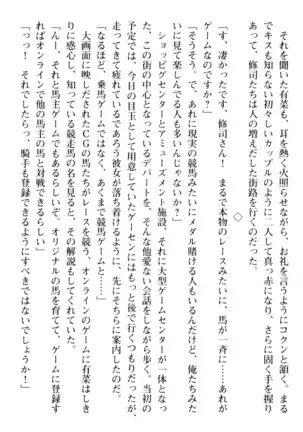 それを聞いた有菜も、耳を熱く火照らせながら、お礼を言うようにコクンと頷く。まる
でキスも知らない初々しいカップルのように二人して真っ赤になり、さらに固く手を握り
あって、修司たちは人の増えだした街路を行くのだった。
◇
「す、凄かったです、修司さん！　まるで本物のレースみたいに、馬が一斉に……あれが
ゲームなのですか」
「そうそう。で、あれに現実の競馬みたいにメダル賭ける人もいるんだけど、俺たちみた
いに見て楽しんでる人も多いんじゃないか？」
ショッピングセンターとアミューズメント施設、それに大型ゲームセンターが一体となっ
た、この街の中心となっているデパートを、そんな他愛ない会話をしながら歩く。当初の
予定では、今日の目玉として用意していたゲーセンにはもっと後で行くつもりだったが、
走ってきて疲れているであろう彼女が落ち着けるように、先にそちらに案内したのだ。
「なるほど、乗馬ゲームではなく、あくまで競馬ゲームと……」
大画面に映しだされたＣＧの馬たちがレースを競う、オンラインのゲームに有菜はしき
りに感心し、知っている競走馬の名を見ると、その解説もしてくれていた。
「んー、それと馬主ゲームでもあるらしいぞ。オリジナルの馬を育てて、ゲームに登録す
ればオンラインで他の馬主の馬と対戦できるらしい」
「っっ！　それでしたらっ、騎手も登録できるようにすべきではないでしょうか！」